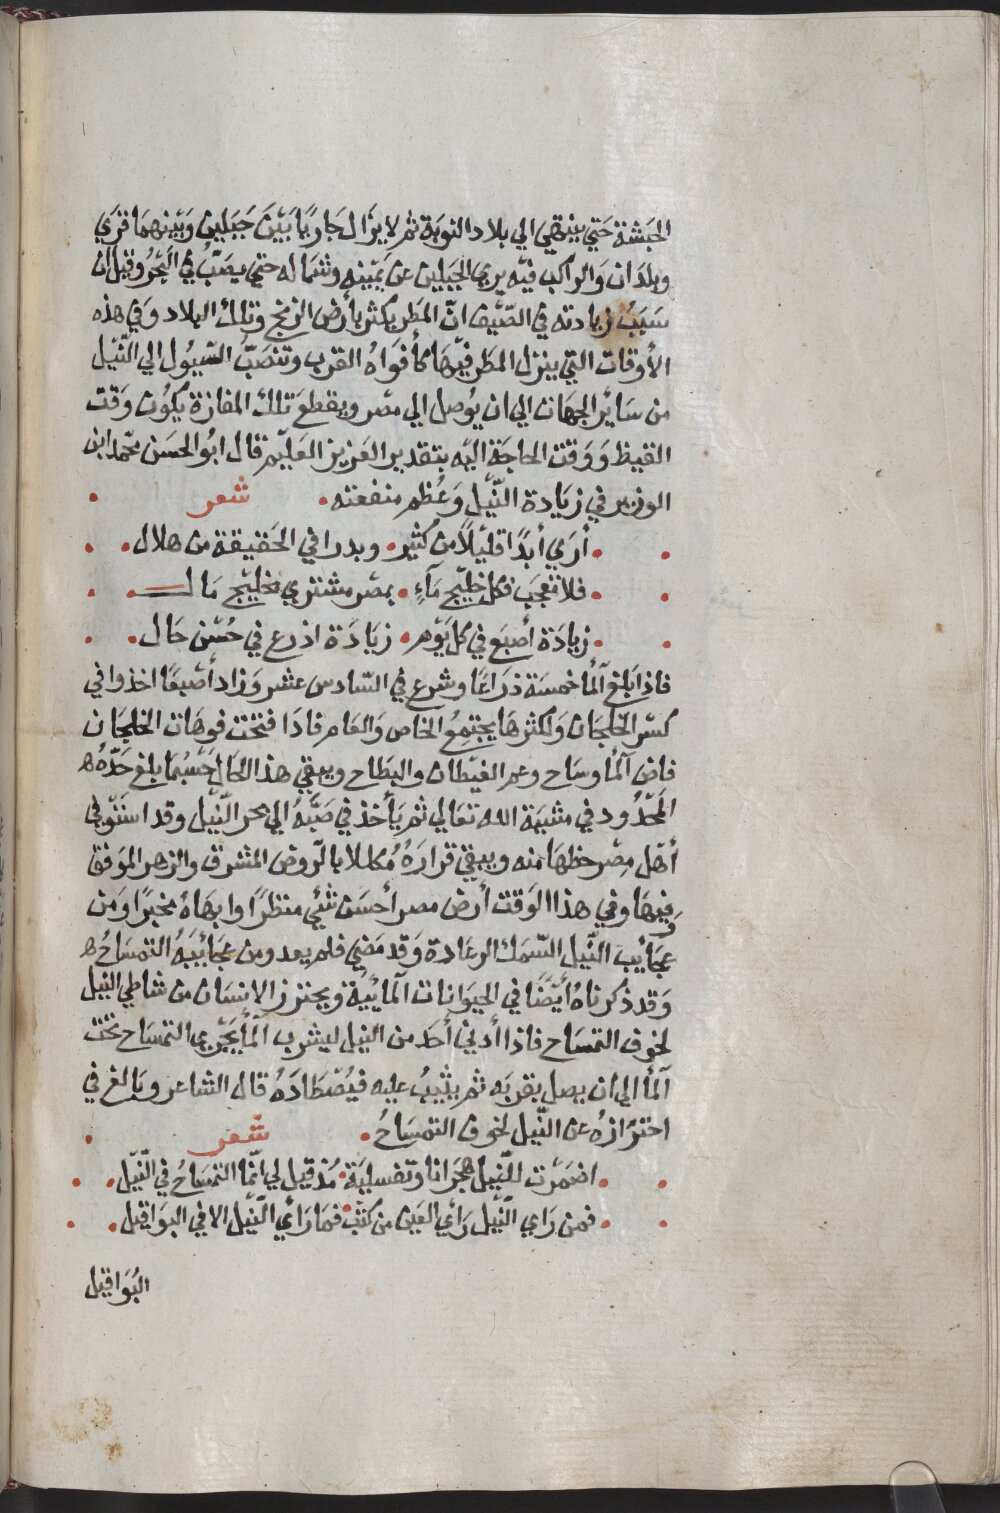 الحبشة حتي ينتهي الي بلاد النوبة ثم لا يزال جاريًا بَيْنَ جَبَلين وَبَيْنهمَا قرَي
وبلدان وَالراكب فيْه يري الجبلين عن يمْينه وشمَاله حتي يصَبُّ في البَحْرُ وقيل ان
سَبَبُ زيادته في الصّيْف انّ المطَر يكثر بأرض الزنج وتلك البلاد وَفي هذه
الأوقات التي ينزل المطَر فيْهَا كأفوَاهُ القرب وتنصَبّ السّيُول الي النّيْل
من سَائر الجهَات الي ان يُوصل الي مصْر ويقطعَ تلك المفازة يكُون وَقت
القيظ وَوَقت الحَاجَة اليْه بتقدير العَزيز العَليْم قال ابُو الحسَن محمّد ابن
الوزير في زيَادة النّيْل وَعُظم منفعته • شعر
أرَي أبدًا قليْلاً من كثير • وبدرا في الحَقيقة من هلال
فلا تعجَب فكل خليْج مَآءٍ • بمصْر مشتري بخليْج مَال
زيادَة أصْبَع في كل يَوْم • زيَادَة اذرع في حُسْن حَال
فاذا بَلغ اَلْمأ خمسَة ذرَاعًا وشرع في السّادس عشر وَزاد أصْبعًا اخذوا في
كسْر الخلجَان وَلكثرهَا يجتمعُ الخاص وَالعَام فاذَا فتحَت فوهَات الخلجَان
فاض اَلْمأ وسَاح وعم الغيْطان والبَطاح ويبقي هذا الحَال حَسْبمَا بلغ حَدّهُ
المَحْدُود في مشيَة الله تعَالي ثم يَأخذ في صَبّهُ الي بحر النّيْل وقد استَوْفي
أهْل مِصْر حظهَا منه ويبقي قرارَهُ مُكللا بالرّوض المشرق والزهر الموَفق
فيهَا وفي هذا الوَقت أرض مصر أحسَن شيْ منظرًا وابهَاهُ مخبَرًا وَمن
عجَايُبَ النّيل السّمَك الرعَادة وَقد مَضي فلم يعد ومن عجَائبَهُ التمسَاحُ
وَقد ذكرناهُ أيْضًا في الحيَوانات اَلْمائيْة ويحترز الانسَان من شاطي النيْل
لخوف التمسَاح فاذا أدني أحَد من النيْل ليشرب اَلْمأ يَجْري التمسَاح تحْت
اَلْمأ الي ان يصل بقربَه ثم يثيبُ عليه فيُصْطادَهُ قال الشاعر وبَالغ في
احترَازهُ عن النّيْل لخوف التمسَاحُ • شعر
اضمَرْت للنّيل هجَرانا وتفسليَة • مُذ قيل لي انّما التمسَاحُ في النّيْل
فمن رَاي النّيْل رَأي العَين من كثب فمَا رَأي النّيْل الا في البوَاقيْل
البُوَاقيل